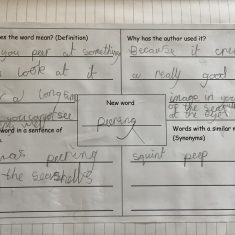 es the word mean? (Definition)
you peer at something
look at it
a long time
you cannot see
Why has the author used it?
Because it
a really good
image in your
at the
New word
peering
word in a sentence of
peering
the seashells
Words with a similar m
(Synonyms)
squint peep